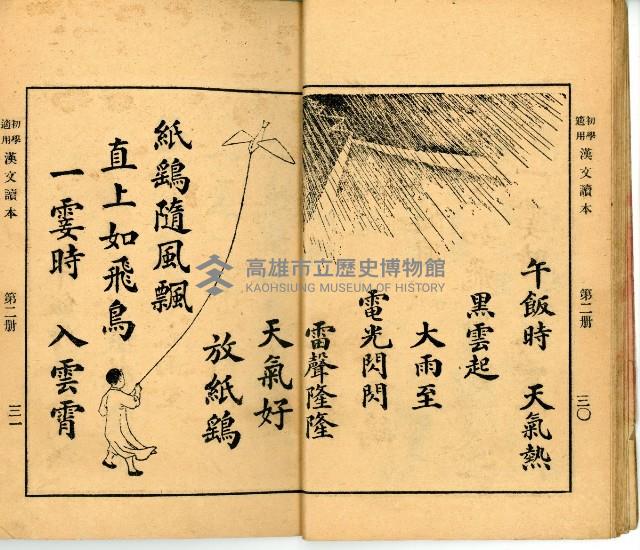 初學適用 漢文讀本 第二册 三〇
午飯時 天氣熱
黑雲起
大雨至
電光閃閃
雷聲隆隆
天氣好
放紙鷂
紙鷂隨風飄
直上如飛鳥
一霎時 入雲霄
初學適用 漢文讀本 第二册 三一
高雄市立歷史博物館
KAOHSIUNG MUSEUM OF HISTORY